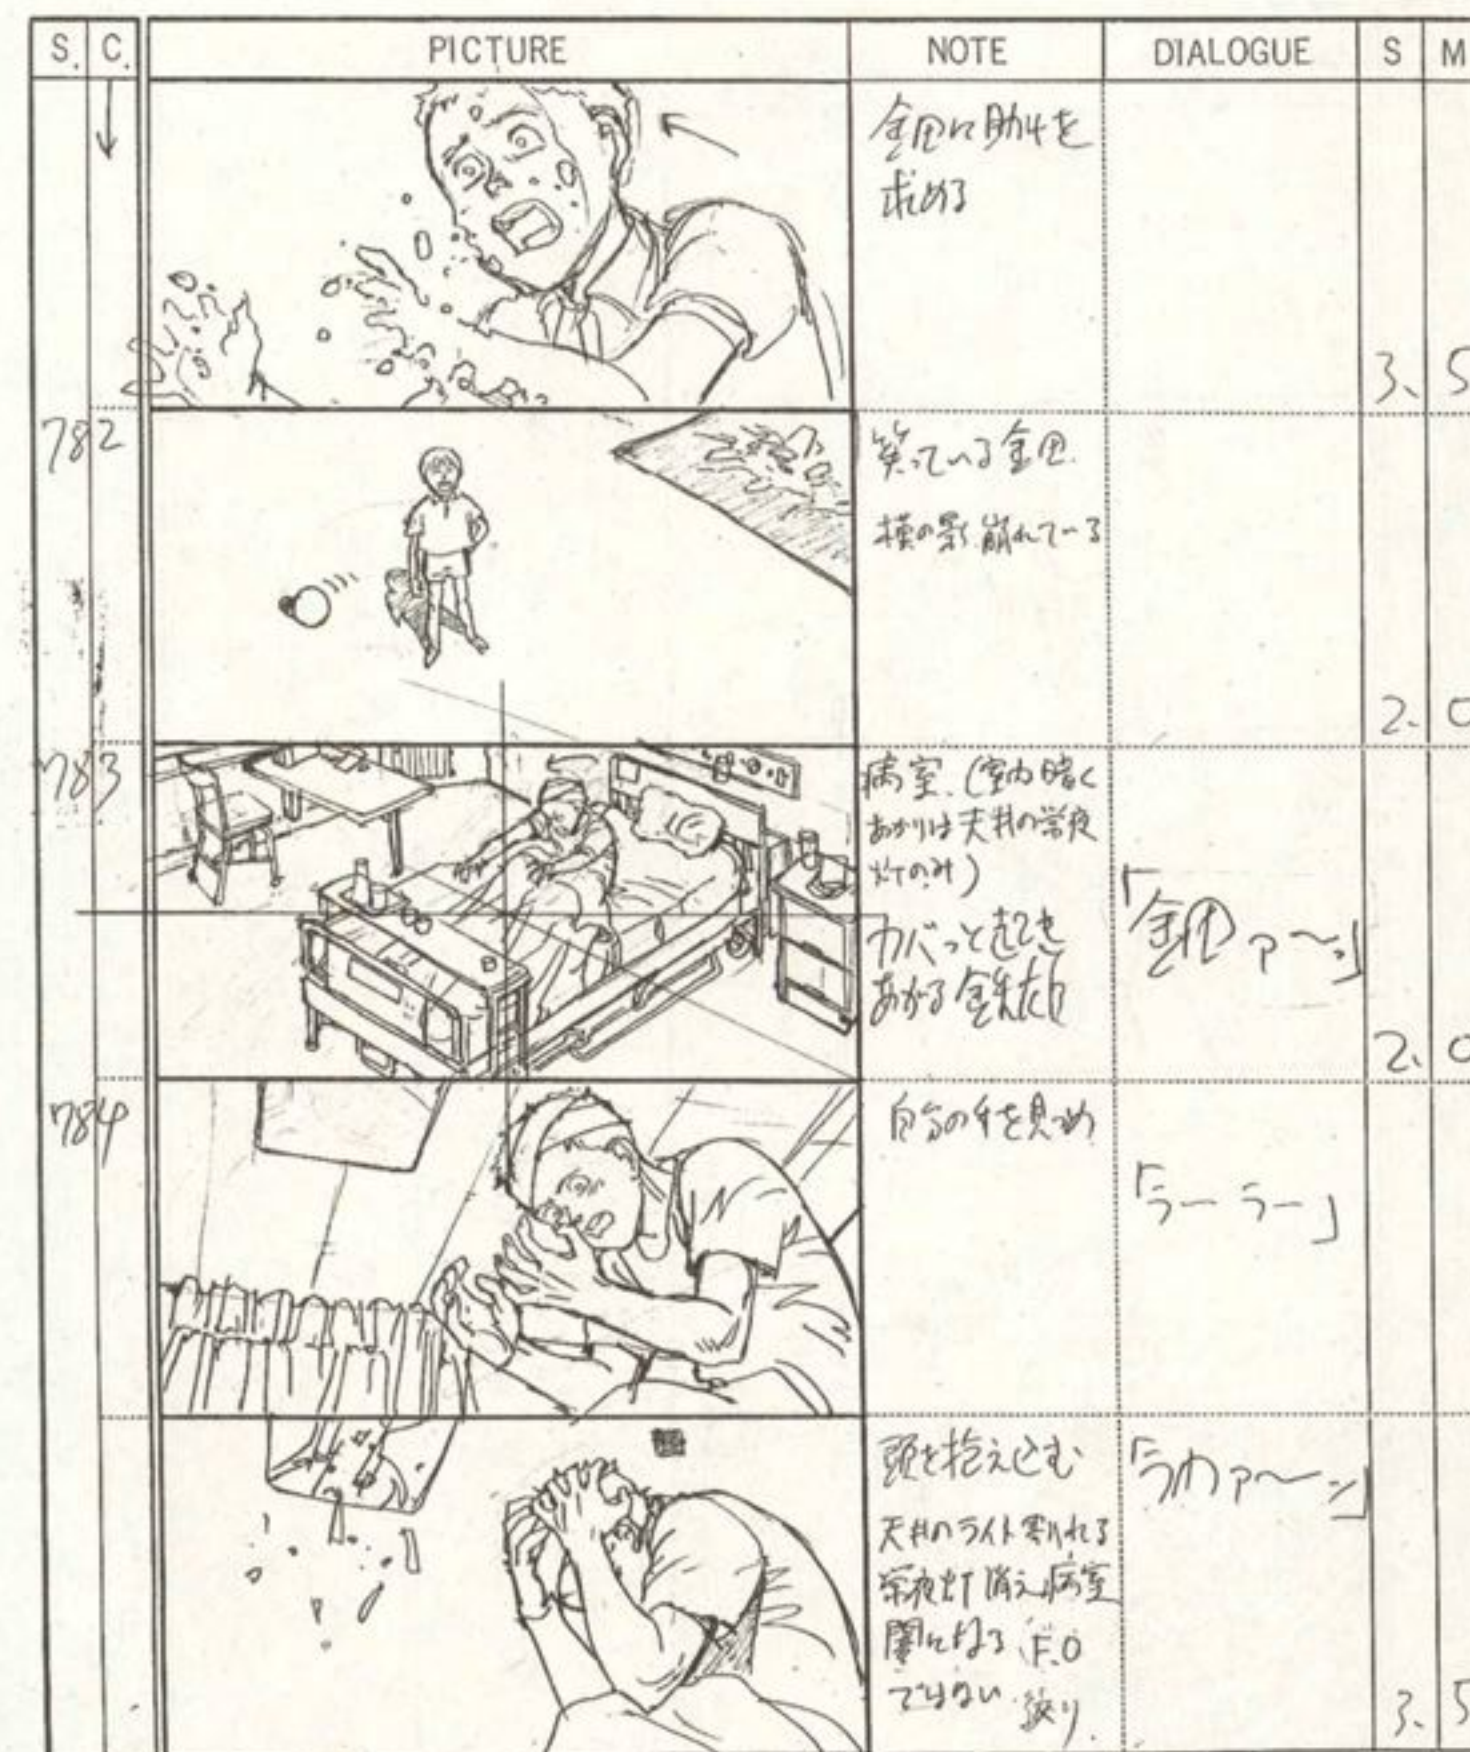 S. C. PICTURE NOTE DIALOGUE S M
金田に助けを
求める
3. 5
782
笑っている金田.
横の影 崩れている
2. 0
783
病室.(室内暗く
あかりは天井の常夜
灯のみ)
ガバっと起き
あがる鉄雄
「金田ァ〜ッ」
2. 0
784
自分の手を見つめ
「うー うー」
頭を抱え込む
天井のライト割れる
常夜灯消え病室
闇になる F.O
ではない 絞り.
「うわァ〜ッ」
3. 5